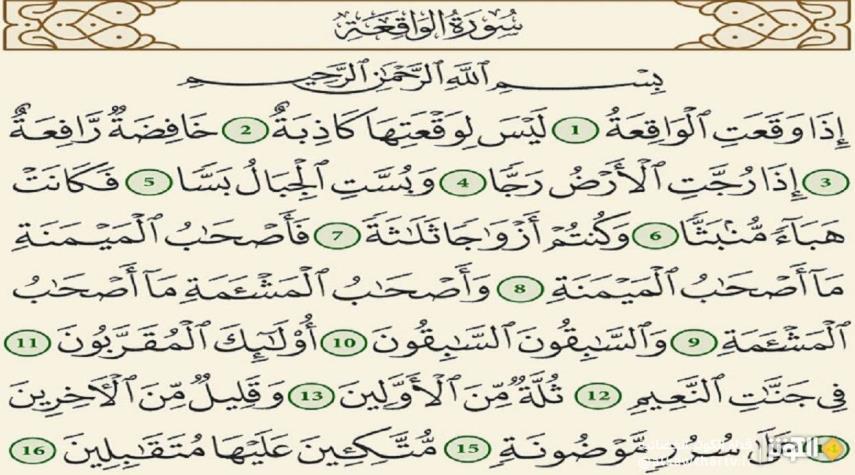 سُورَةُ الوَاقِعَةِ
بِسْمِ اللَّهِ الرَّحْمَٰنِ الرَّحِيمِ
إِذَا وَقَعَتِ ٱلْوَاقِعَةُ 1 لَيْسَ لِوَقْعَتِهَا كَاذِبَةٌ 2 خَافِضَةٌ رَّافِعَةٌ
3 إِذَا رُجَّتِ ٱلْأَرْضُ رَجًّا 4 وَبُسَّتِ ٱلْجِبَالُ بَسًّا 5 فَكَانَتْ
هَبَآءً مُّنۢبَثًّا 6 وَكُنتُمْ أَزْوَٰجًا ثَلَٰثَةً 7 فَأَصْحَٰبُ ٱلْمَيْمَنَةِ
مَآ أَصْحَٰبُ ٱلْمَيْمَنَةِ 8 وَأَصْحَٰبُ ٱلْمَشْـَٔمَةِ مَآ أَصْحَٰبُ
ٱلْمَشْـَٔمَةِ 9 وَٱلسَّٰبِقُونَ ٱلسَّٰبِقُونَ 10 أُوْلَٰٓئِكَ ٱلْمُقَرَّبُونَ 11
فِى جَنَّٰتِ ٱلنَّعِيمِ 12 ثُلَّةٌ مِّنَ ٱلْأَوَّلِينَ 13 وَقَلِيلٌ مِّنَ ٱلْأَخِرِينَ
سُرُرٍ مَّوْضُونَةٍ 15 مُّتَّكِـِٔينَ عَلَيْهَا مُتَقَٰبِلِينَ 16